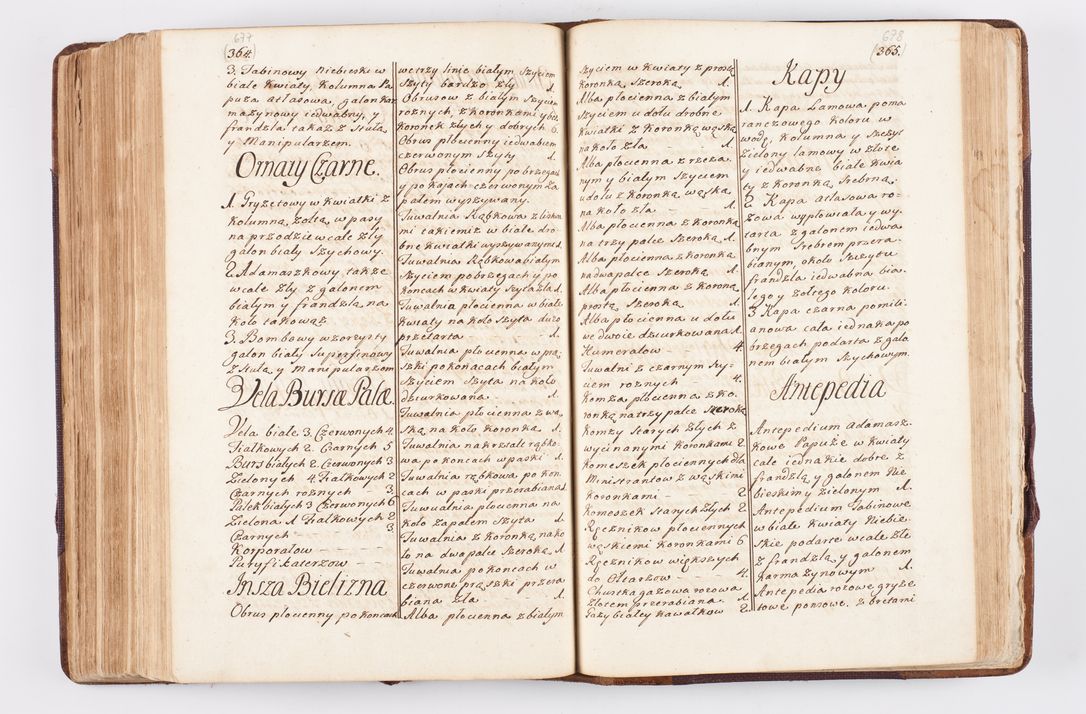 677
364.
3. Tabinowy Niebieski w
białe kwiaty, kolumna Pa
puza atłasowa, galonkar
mazynowy iedwabny, y
frandzla takaz z Stułą
y Manipularzem.
Ornaty Czarne.
1. Gryzetowy w kwiatki z
kolumną zołtą, w pasy
na przodzie wcale zły
galon biały Szychowy.
2. Adamaszkowy także
wcale zły z galonem
białym y frandzlą na
koło takowąż
3. Bombawy wzorzysty
galon biały Superfinowy
z Stułą y Manipularzom
Vela Bursæ Palæ.
Vela białe 3. Czerwonych 4
Fiałkowych 2. Czarnych 5
Burs białych 2. Czerwonych 3
Zielonych 4. Fiałkowych 2
Czarnych roznych - 3.
Palek białych 3 Czerwonych 6
Zielona 1 Fiałkowych 2
Czarnych - 3
Korporałow - -
Puryfikaterzow - -
Insza Bielizna
Obrus płocienny po koncach
we trzy linie białym Szyciem
Szyty bardzo zły 1.
Obrusow z białym Szyciem
roznych, z koronkami y bez
koronek złych y dobrych 6.
Obrus płocienny iedwabiem
czerwonym Szyty 1.
Obrus płocienny po brzegach
y po kraiach czerwonym Za
pałem wyszywany.
Tuwalnia Rąbkowa z listkami
mi takiemiż w białe dro
bne kwiatki wyszywanym 1.
Tuwalnia Rąbkowa białym
Szyciem po brzegach y po
koncach w kwiaty Szyta zła 1.
Tuwalnia płocienna w białe
kwiaty na koło Szyta duzo
przetarta 1.
Tuwalnia płocienna w pa
szki po koncach białym
Szyciem Szyta na koło
dziurkowana 1.
Tuwalnia płocienna z wa
ską na koło koronką 1.
Tuwalnia na krzale rąbko
wa po koncach w paski 1.
Tuwalnia rąbkowa po kon
cach w paski przerabiana 1.
Tuwalnia płocienna na
koło Zapałem Szyta 1.
Tuwalnia z koronką nako
ło na dwa palce Szeroką 1.
Tuwalnia po koncach w
czerwone prążki przera
biana zła 1.
Alba płocienna z białym
678
365.
Szyciem w kwiaty z prostą
koronką Szeroką 1.
Alba płocienna z białym
Szyciem u dołu drobne
kwiatki z koronką wąską
na koło zła 1.
Alba płocienna z rzeza
nym y białym Szyciem
u dołu z koronką wąską
na koło zła 1.
Alba płocienna z koronką
na trzy palce Szeroką 1.
Alba płocienna z koronką
na dwa palce Szeroką 1.
Alba płocienna z koroną
prostą Szeroką 1.
Alba płocienna u dołu
we dwoie dziurkowana 1.
Humerałow - 4.
Tuwalni z czarnym Szy-
ciem roznych - 4.
Komza płocienna z ko
ronką na trzy palce Szeroką
Komzy Starych złych z
wycinanymi koronkami 2.
Komeszek płociennych dla
Ministrantow z wąskimi
koronkami - 2.
Komeszek Starych złych 2
Ręcznikow płociennych
wąskiemi koronkami 6
Ręcznikow większych
do Ołtarzow - 4.
Chustka gazowa rozowa
złotem przerabiana 1.
Gazy białey kawałkow 2.
Kapy
1. Kapa Lamowa poma
ranczowego koloru w
wodę, kolumna y Szczyt
Zielony lamowy w złote
y iedwabne białe kwia
ty z koronką Srebrną.
2. Kapa Atłasowa ro-
zowa wypłowiała y wy-
tarta z galonem iedwa
bnym Srebrem przera
bianym, około Szczytu
frandzla iedwabna bia-
łego y zołtego koloru.
3. Kapa czarna pomiti-
anowa cała iednak po
brzegach podarta z galo
nem białym Szychowym.
Antepedia
Antepedium adamasz-
kowe Papuże w kwiaty
całe iednakie dobre z
frandzlą y galonem Nie
bieskim y zielonym 1.
Antepedium Tabinowe
w białe kwiaty Niebie-
skie podarte wcale złe
z frandzlą y galonem
karmazynowym 1.
Antepedia rozowe gryze
towe ponsowe, z bretami